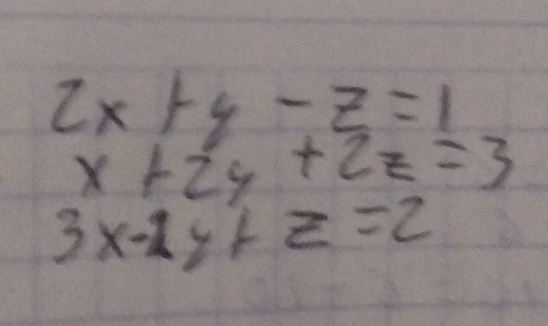 2x + y - z = 1
x + 2y + 2z = 3
3x - 1y + z = 2